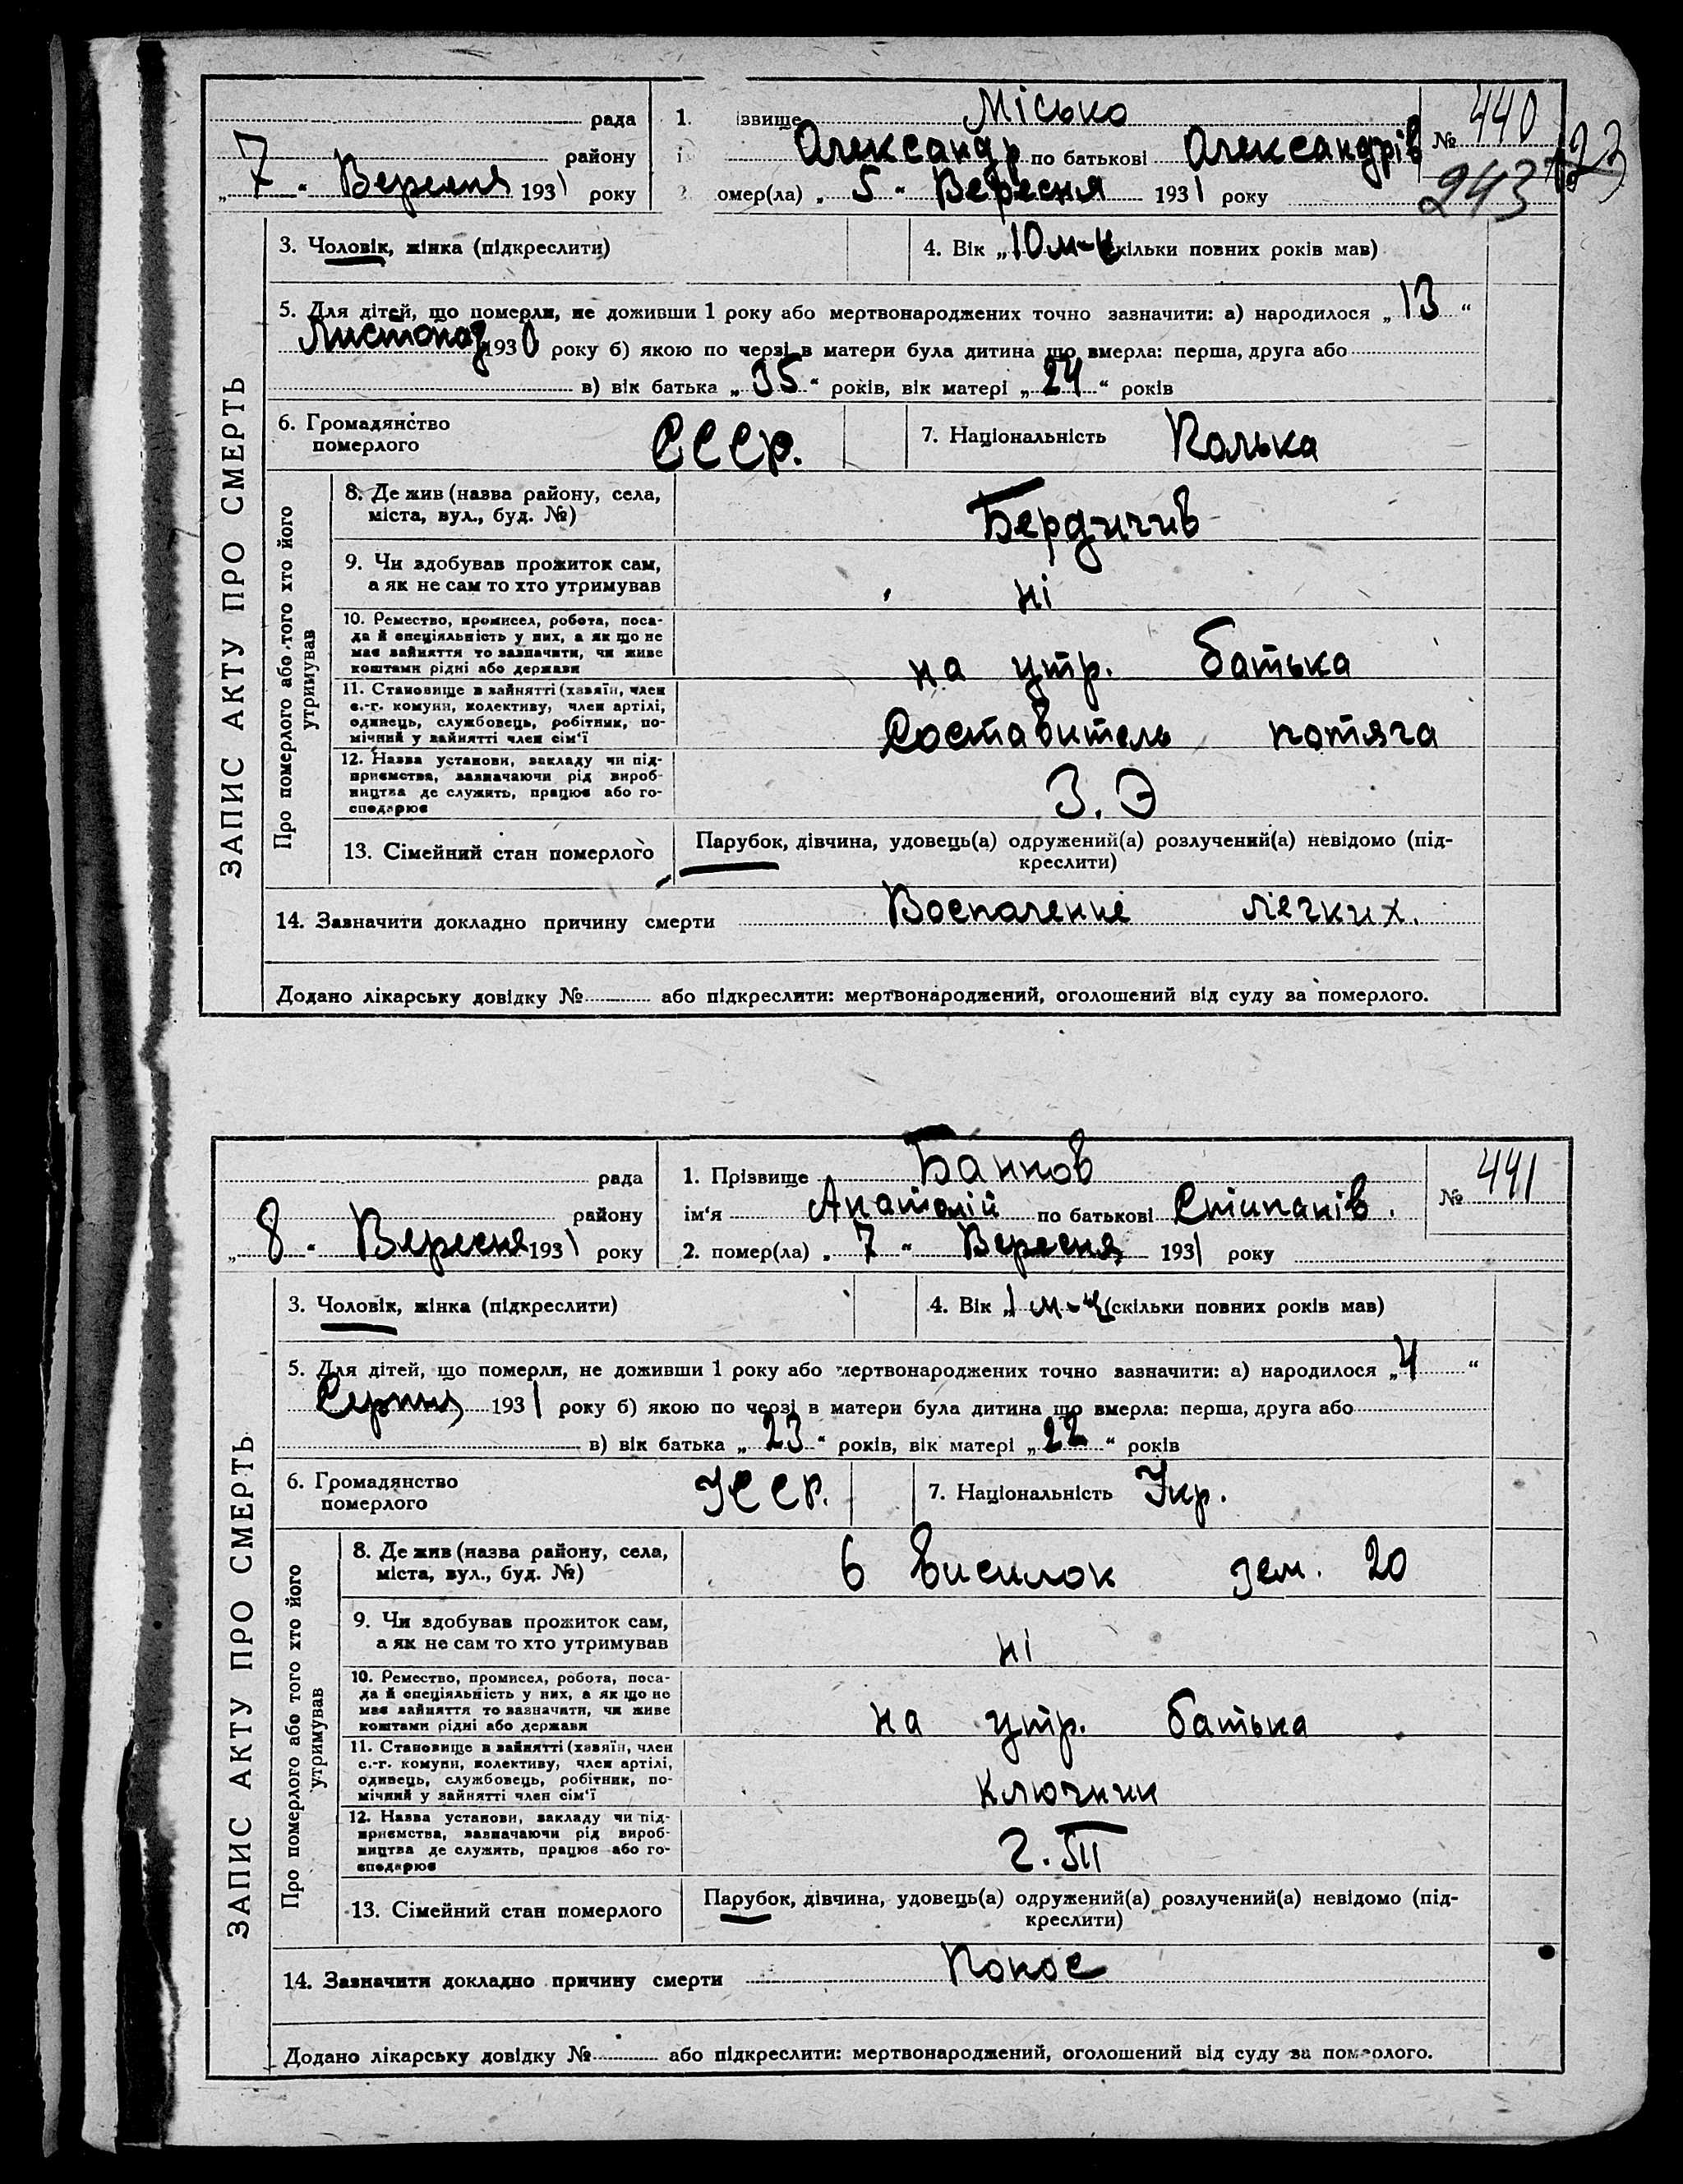 рада 1. ізвище Місько № 440
району і Олександр по батькові Олександрів
„ 7 “ Вересня 1931 року омер(ла) „ 5 “ Вересня 1931 року 243
3. Чоловік, жінка (підкреслити) 4. Вік „ 10 м-ц (скільки повних років мав)
5. Для дітей, що померли, не доживши 1 року або мертвонароджених точно зазначити: а) народилося „ 13 “
Листопад 1930 року б) якою по черзі в матери була дитина що вмерла: перша, друга або
в) вік батька „ 35 “ років, вік матері „ 24 “ років
6. Громадянство
померлого СССР.
7. Національність Полька
ЗАПИС АКТУ ПРО СМЕРТЬ
Про померлого або того хто його
утримував
8. Де жив (назва району, села,
міста, вул., буд. №) Бердичив
9. Чи здобував прожиток сам,
а як не сам то хто утримував ні
10. Ремество, промисел, робота, поса-
да й спеціяльність у них, а як що не
має зайняття то зазначити, чи живе
коштами рідні або держави на утр. батька
11. Становище в зайнятті (хазяїн, член
с.-г. комуни, колективу, член артілі,
одинець, службовець, робітник, по-
мічний у зайнятті член сім'ї Составитель потяга
12. Назва установи, закладу чи під-
приємства, зазначаючи рід вироб-
ництва де служить, працює або го-
сподарює З. Э
13. Сімейний стан померлого Парубок, дівчина, удовець(а) одружений(а) розлучений(а) невідомо (під-
креслити)
14. Зазначити докладно причину смерти Воспаление легких.
Додано лікарську довідку № або підкреслити: мертвонароджений, оголошений від суду за померлого.
рада 1. Прізвище Банков № 441
району ім'я Анатолій по батькові Стипанів.
„ 8 “ Вересня 1931 року 2. помер(ла) „ 7 “ Вересня 1931 року
3. Чоловік, жінка (підкреслити) 4. Вік „ 1 м-ц (скільки повних років мав)
5. Для дітей, що померли, не доживши 1 року або мертвонароджених точно зазначити: а) народилося „ 4 “
Серпня 1931 року б) якою по черзі в матери була дитина що вмерла: перша, друга або
в) вік батька „ 23 “ років, вік матері „ 22 “ років
6. Громадянство
померлого УССР.
7. Національність Укр.
ЗАПИС АКТУ ПРО СМЕРТЬ
Про померлого або того хто його
утримував
8. Де жив (назва району, села,
міста, вул., буд. №) 6 висилок зем. 20
9. Чи здобував прожиток сам,
а як не сам то хто утримував ні
10. Ремество, промисел, робота, поса-
да й спеціяльність у них, а як що не
має зайняття то зазначити, чи живе
коштами рідні або держави на утр. батька
11. Становище в зайнятті (хазяїн, член
с.-г. комуни, колективу, член артілі,
одинець, службовець, робітник, по-
мічний у зайнятті член сім'ї ключник
12. Назва установи, закладу чи під-
приємства, зазначаючи рід вироб-
ництва де служить, працює або го-
сподарює
13. Сімейний стан померлого Парубок, дівчина, удовець(а) одружений(а) розлучений(а) невідомо (під-
креслити)
14. Зазначити докладно причину смерти Понос
Додано лікарську довідку № або підкреслити: мертвонароджений, оголошений від суду за померлого.